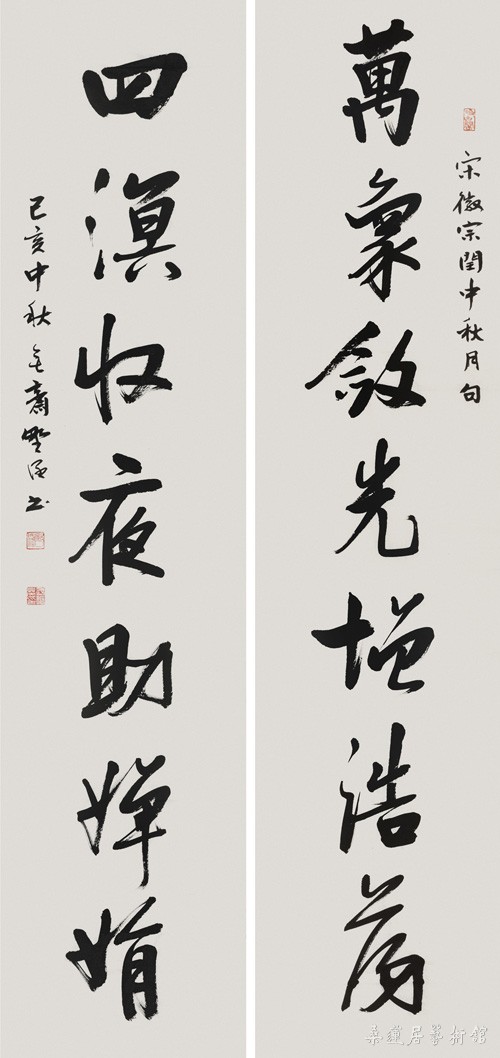 宋徽宗閏中秋月句
萬象斂光增浩蕩
四溟收夜助嬋娟
己亥中秋書
桑蓮居藝術館